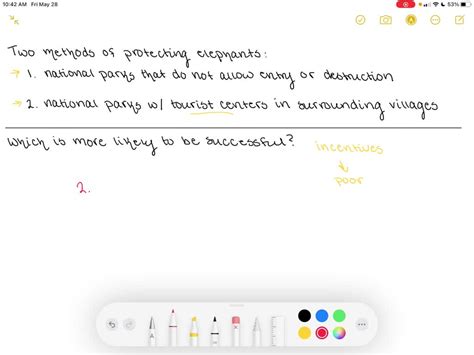 10:42 AM Fri May 28
53%
Two methods of protecting elephants:
→ 1. national parks that do not allow entry or destruction
→ 2. national parks w/ tourist centers in surrounding villages
Which is more likely to be successful?
incentives
↓
poor
2.